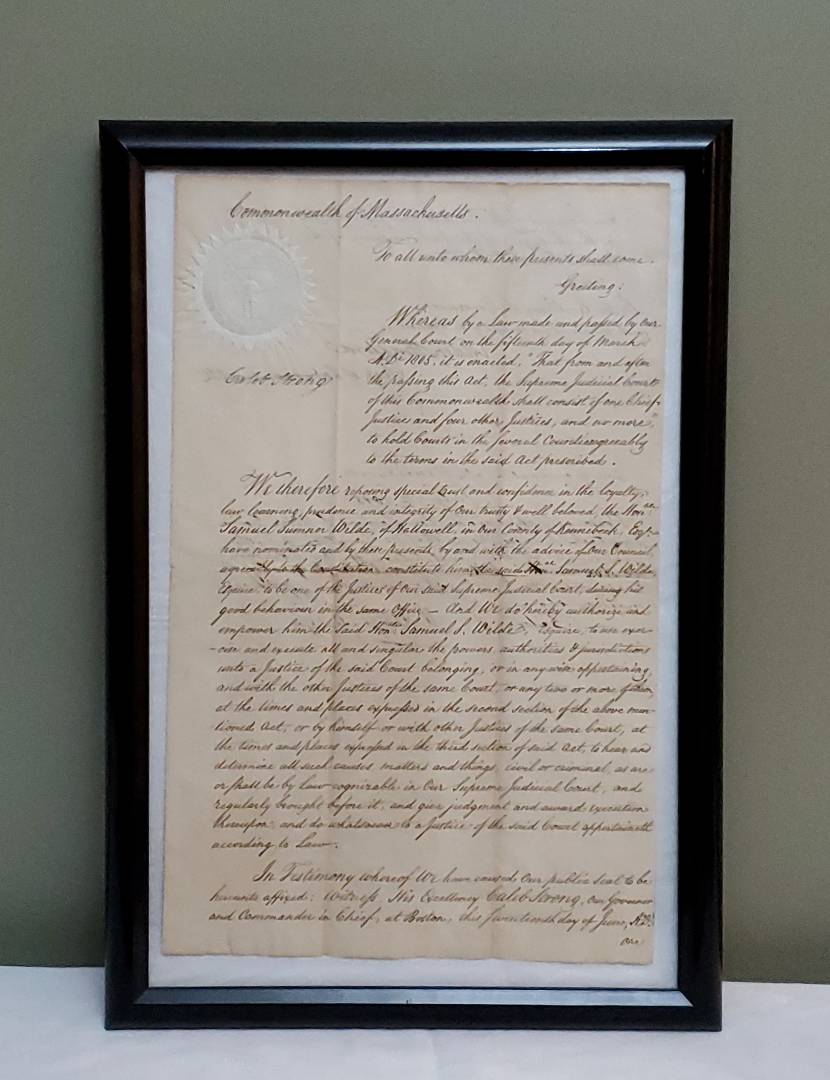 Commonwealth of Massachusetts.
To all unto whom these presents shall come.
Greeting:
Whereas by a Law made and passed by Our
General Court on the fifteenth day of March
A.D. 1805. it is enacted, "That from and after
the passing this Act, the Supreme Judicial Court
of this Commonwealth shall consist of one Chief
Justice and four other Justices, and no more,"
to hold Courts in the several Counties agreeably
to the terms in the said Act prescribed.
Caleb Strong
We therefore reposing special trust and confidence in the loyalty,
law learning, prudence and integrity of Our trusty & well beloved, the Honble
Samuel Sumner Wilde, of Hallowell, in Our County of Kennebeck, Esqr.
have nominated and by these presents, by and with the advice of Our Council,
constitute him the said Honble Samuel S. Wilde
Esquire to be one of the Justices of Our said Supreme Judicial Court, during his
good behaviour in the same Office — And We do hereby authorize and
empower him the said Honble Samuel S. Wilde, Esquire, to use exer-
-cise and execute all and singular the powers, authorities & jurisdictions
unto a Justice of the said Court belonging, or in any wise appertaining,
and with the other Justices of the same Court, or any two or more of them,
at the times and places expressed in the second section of the above men-
tioned Act, or by himself or with other Justices of the same Court, at
the times and places expressed in the third section of said Act, to hear and
determine all such causes, matters and things, civil or criminal, as are
or shall be by Law cognizable in Our Supreme Judicial Court, and
regularly brought before it, and give judgment and award execution
thereupon, and do whatsoever to a Justice of the said Court appertaineth
according to Law.
In Testimony whereof We have caused Our public Seal to be
hereunto affixed: Witness, His Excellency Caleb Strong, Our Governor
and Commander in Chief, at Boston, this day of June, A.D.